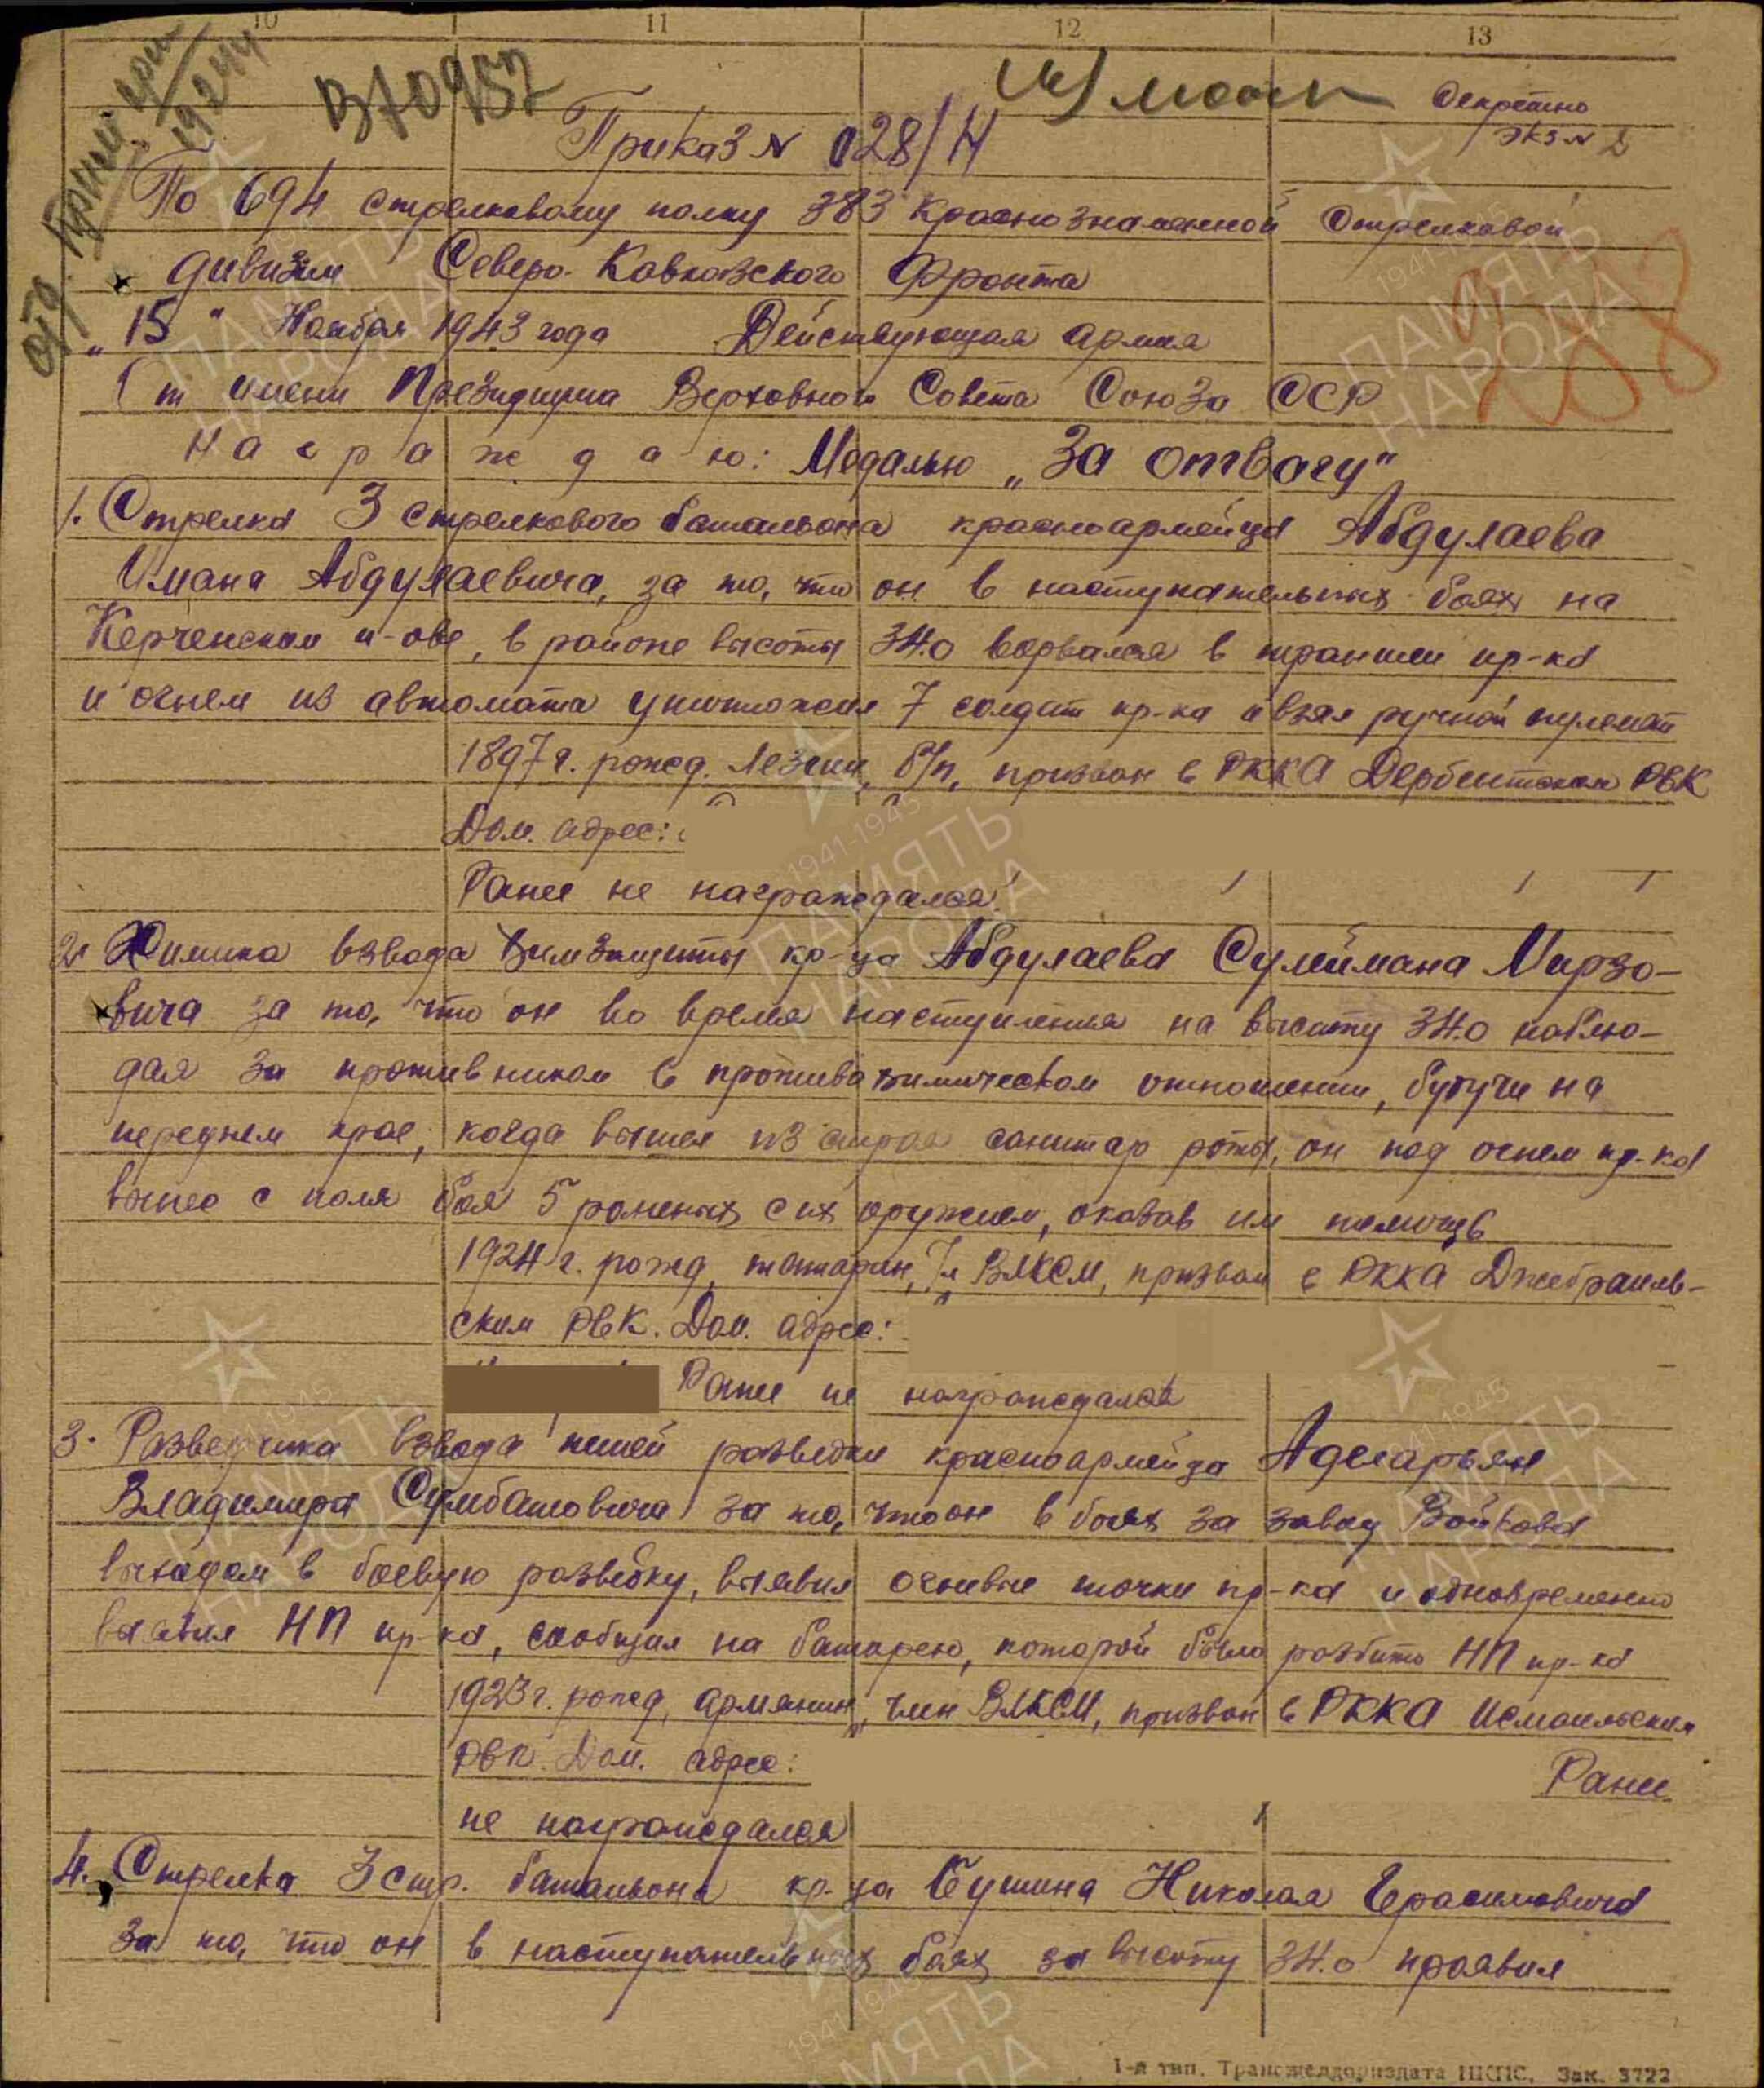 10 11 12 13
В70957
Секретно
Экз № 2
Приказ № 028/Н
По 694 стрелковому полку 383 Краснознаменной Стрелковой
дивизии Северо-Кавказского Фронта
"15" Ноября 1943 года Действующая армия
От имени Президиума Верховного Совета Союза ССР
Награждаю: Медалью "За отвагу"
1. Стрелка 3 стрелкового батальона красноармейца Абдулаева
Имана Абдулаевича, за то, что он в наступательных боях на
Керченском п-ове, в районе высоты 34.0 ворвался в траншеи пр-ка
и огнем из автомата уничтожил 7 солдат пр-ка и взял ручной пулемет
1897 г. рожд. Лезгин, б/п, призван в РККА Дербентским РВК
Дом. адрес:
Ранее не награждался.
2. Химика взвода химзащиты кр-ца Абдулаева Сулеймана Мирзо-
вича за то, что он во время наступления на высоту 34.0 наблю-
дая за противником в противохимическом отношении, будучи на
переднем крае, когда вышел из строя санитар роты, он под огнем пр-ка
вынес с поля боя 5 раненых с их оружием, оказав им помощь
1924 г. рожд, татарин, чл ВЛКСМ, призван в РККА Джебраиль-
ским РВК. Дом. адрес:
Ранее не награждался
3. Разведчика взвода пешей разведки красноармейца Адегарьян
Владимира Сумбатовича за то, что он в боях за завод Войкова
выходом в боевую разведку, выявил огневые точки пр-ка и одновременно
выявил НП пр-ка, сообщил на батарею, которой было разбито НП пр-ка
1923 г. рожд, армянин, член ВЛКСМ, призван в РККА Исмаильским
РВК. Дом. адрес: Ранее
не награждался
4. Стрелка 3 стр. батальона кр-ца Бушина Николая Герасимовича
за то, что он в наступательных боях за высоту 34.0 проявил
1-я тип. Трансжелдориздата НКПС. Зак. 3722
ПАМЯТЬ
НАРОДА
1941-1945